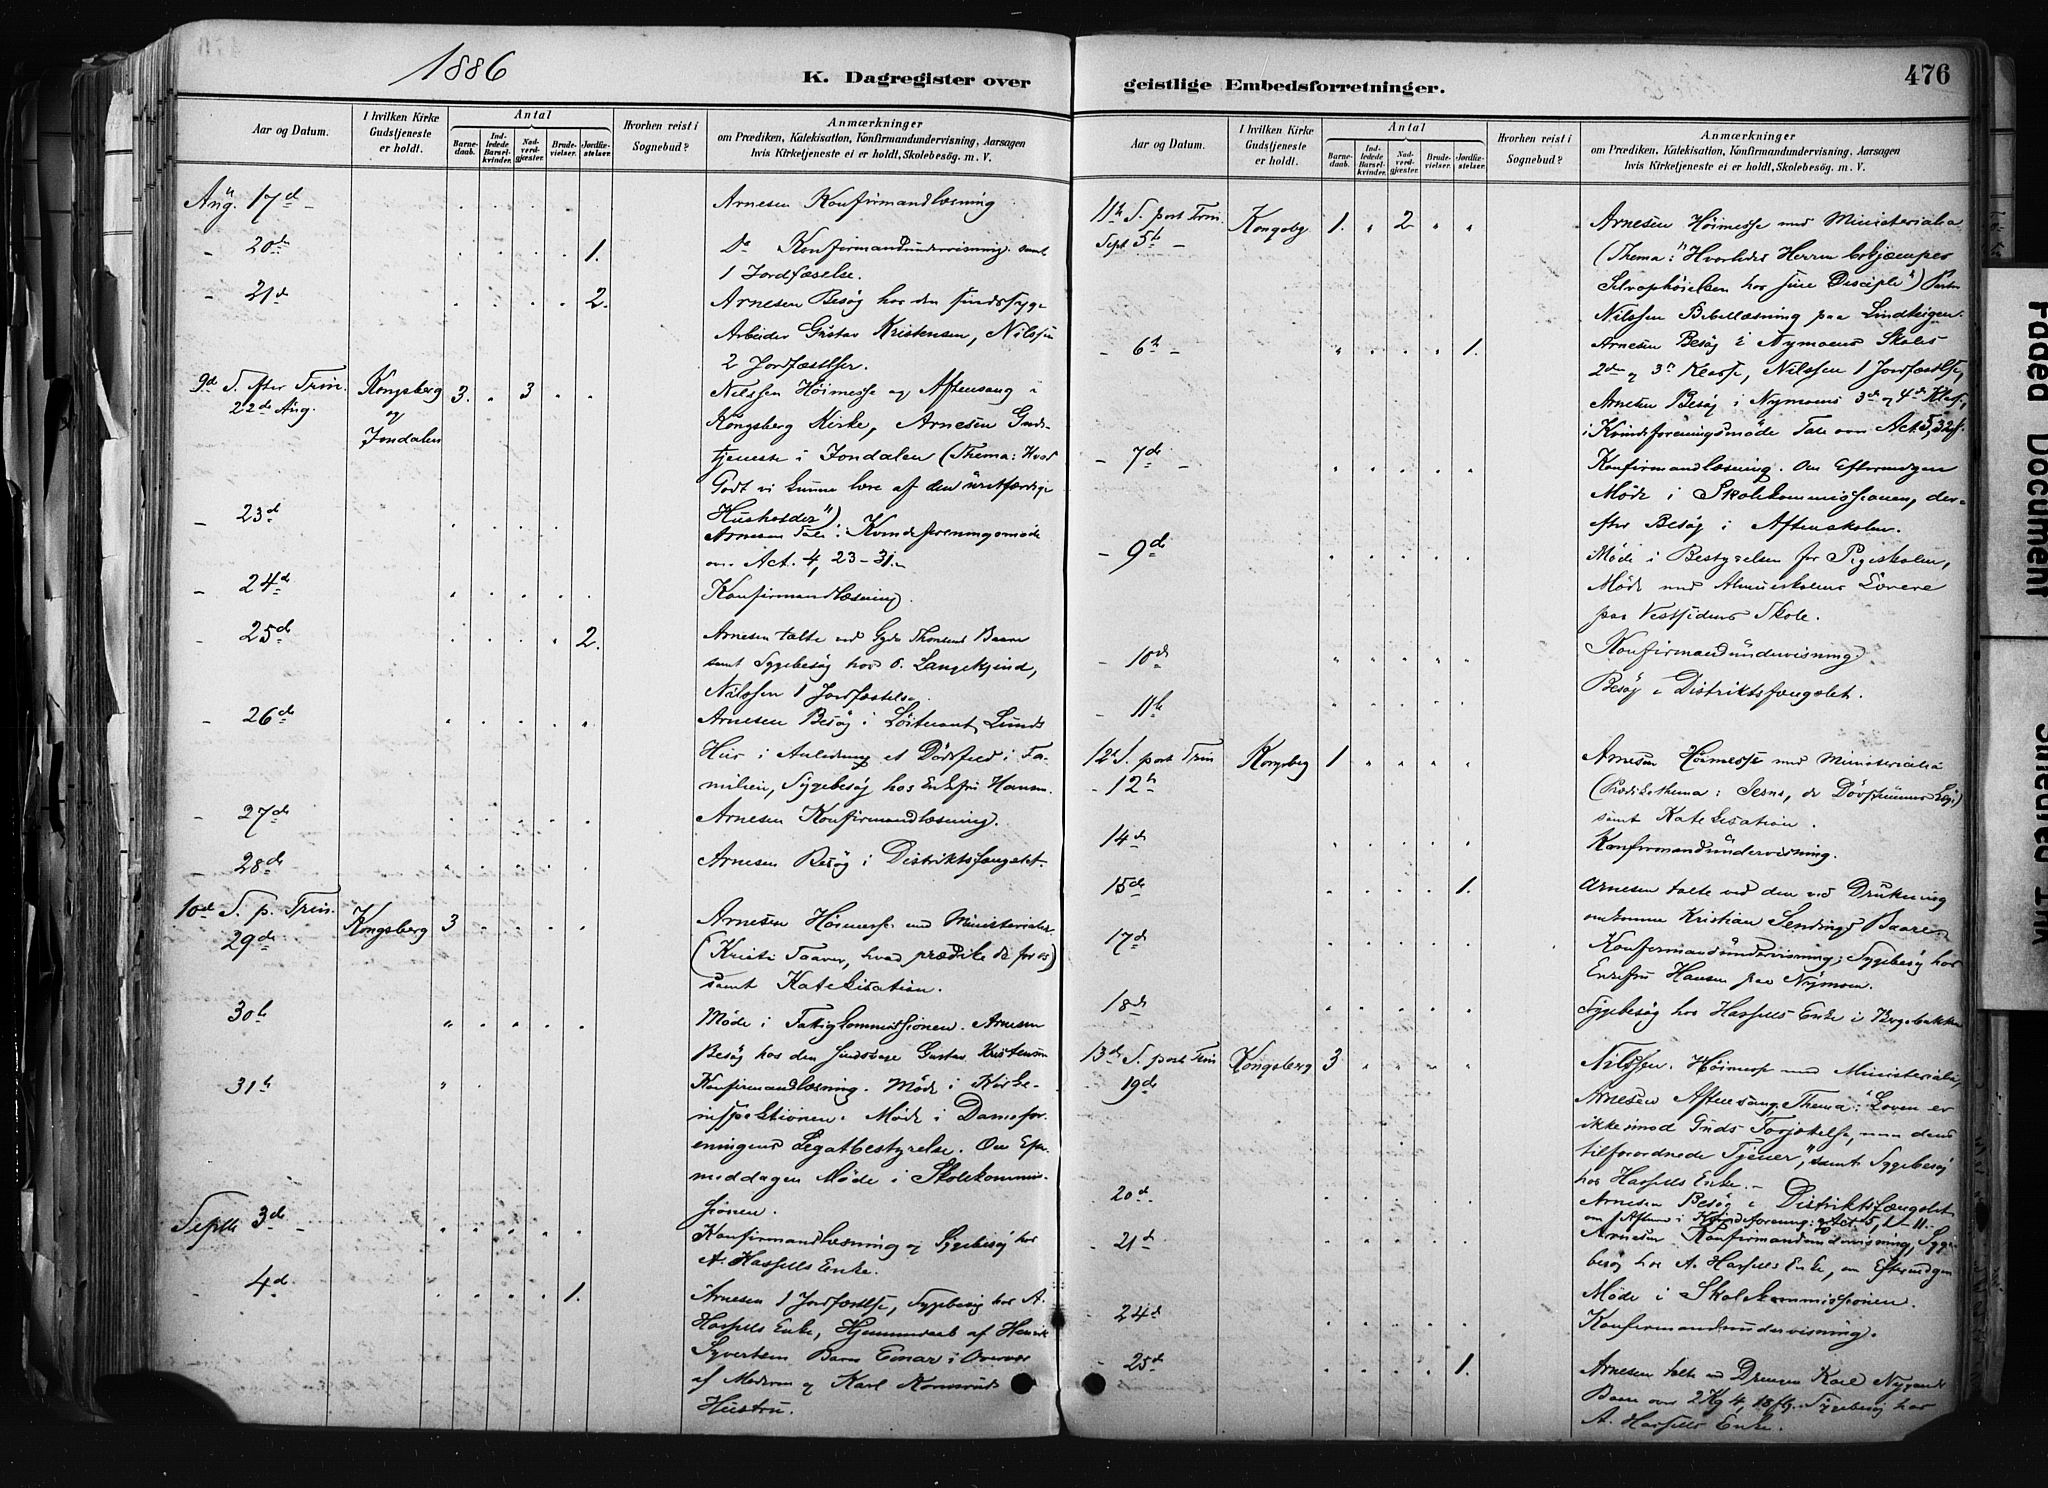 1886
K. Dagregister over geistlige Embedsforretninger.
476
Aar og Datum.
I hvilken Kirke Gudstjeneste er holdt.
Antal
Barne-daab.
Ind-ledede Barsel-kvinder.
Nad-verd-gjæster.
Brude-vielser.
Jordfæ-stelser.
Hvorhen reist i Sognebud?
Anmærkninger
om Prædiken, Katekisation, Konfirmandundervisning, Aarsagen
hvis Kirketjeneste ei er holdt, Skolebesøg. m. V.
Aug. 17d - Arnesen Konfirmandlæsning
- 20de 1. Do Konfirmandundervisning samt
1 Jordfæstelse.
- 21d 2. Arnesen Besøg hos den sindssyge
Arbeider Gustav Kristensen, Nilssen
2 Jordfæstelser.
9d S. efter Trin. Kongsberg 3. 3 Nilssen Høimesse og Aftensang i
22de Aug. og Kongsberg Kirke, Arnesen Guds-
Jondalen tjeneste i Jondalen (Thema: Hvad
Godt vi kunne lære af den uretfærdige
- 23d Husholder")
Arnesen Tale i Kvindeforeningsmøde
over Act. 4, 23-31.
- 24de Konfirmandlæsning.
- 25de 2. Arnesen talte ved Thorsens Baare
samt Sygebesøg hos O. Langekjend,
Nilssen 1 Jordfæstelse.
- 26de Arnesen Besøg i Løitenant Lunds
Hus i Anledning et Dødsfald i Fa-
milien, Sygebesøg hos Enkefru Hansen.
- 27de Arnesen Konfirmandlæsning.
- 28de Arnesen Besøg i Distriktsfængslet.
10de S. p. Trin. Kongsberg 3 Arnesen Høimesse med Ministerialia
29de (Kristi Taarer, hvad prædike de for os)
samt Katekisation.
30te Møde i Fattigkommissionen. Arnesen
Besøg hos den sindssyge Gustav Kristensen
31te Konfirmandlæsning. Møde i Kirke-
inspektionen. Møde i Damefor-
eningens Legatbestyrelse. Om Efter-
middagen Møde i Skolekommis-
sionen.
Septb 3de - Konfirmandlæsning og Sygebesøg hos
A. Hassells Enke.
4d. 1. Arnesen 1 Jordfæstelse, Sygebesøg hos A.
Hassells Enke, Hjemmedaab af Henrik
Syvertsen Barn Einar i Overvær
af Moderen og Karl Hustru.
Aar og Datum.
I hvilken Kirke Gudstjeneste er holdt.
Antal
Barne-daab.
Ind-ledede Barsel-kvinder.
Nad-verd-gjæster.
Brude-vielser.
Jordfæ-stelser.
Hvorhen reist i Sognebud?
Anmærkninger
om Prædiken, Katekisation, Konfirmandundervisning, Aarsagen
hvis Kirketjeneste ei er holdt, Skolebesøg. m. V.
11te S. post Trin. Kongsbg 1. 2 Arnesen Høimesse med Ministerialia
Sept 5te - (Thema: "Hvorledes Herren bekjæmper
Selvophøielsen hos sine Disciple")
Nilssen Bibellæsning paa
- 6te - 1. Arnesen Besøg i Nymoens Skoles
2den og 3die Klasse, Nilssen 1 Jordfæstelse,
Arnesen Besøg i Nymoens 3de og 4de Klasse,
i Kvindeforeningsmøde Tale over Act. 5, 32f.
- 7de - Konfirmandlæsning. Om Eftermidgen
Møde i Skolekommissionen, der-
efter Besøg i Aftenskolen.
- 9de Møde i Bestyrelsen for Pigeskolen,
Møde med Almueskolens Lærere
paa Vestsidens Skole.
- 10de Konfirmandundervisning.
- 11te Besøg i Distriktsfængslet.
12te S. post Trin Kongsberg 1 Arnesen Høimesse med Ministerialia
- 12te (Prædikethema: Jesus, de Døvstummes Læge)
samt Katekisation.
14de Konfirmandundervisning.
15de 1. Arnesen talte ved den ved Drukning
omkomne Kristian Baare.
17de Konfirmandundervisning; Sygebesøg hos
Enkefru Hansen paa Nymoen.
18de Sygebesøg hos Hassells Enke i
13de S. post Trin Kongsberg 3 Nilssen. Høimesse med Ministerialia,
19de Arnesen Aftensang, Thema: "Loven er
ikke imod Guds Forjættelse, men dens
tilforordnede Tjener", samt Sygebesøg
hos Hassells Enke. -
20de Arnesen Besøg i Distriktsfængslet
om Aftenen i Kvindeforening: Act. 5, 1-11.
- 21de Arnesen Konfirmandundervisning, Syge-
besøg hos A. Hassells Enke, om Eftermidgen
Møde i Skolekommissionen.
- 24de Konfirmandundervisning.
- 25de 1. Arnesen talte ved Drengen Karl
Baare over 2 Kg 4, 18 flg. Sygebesøg hos
A. Hassells Enke.